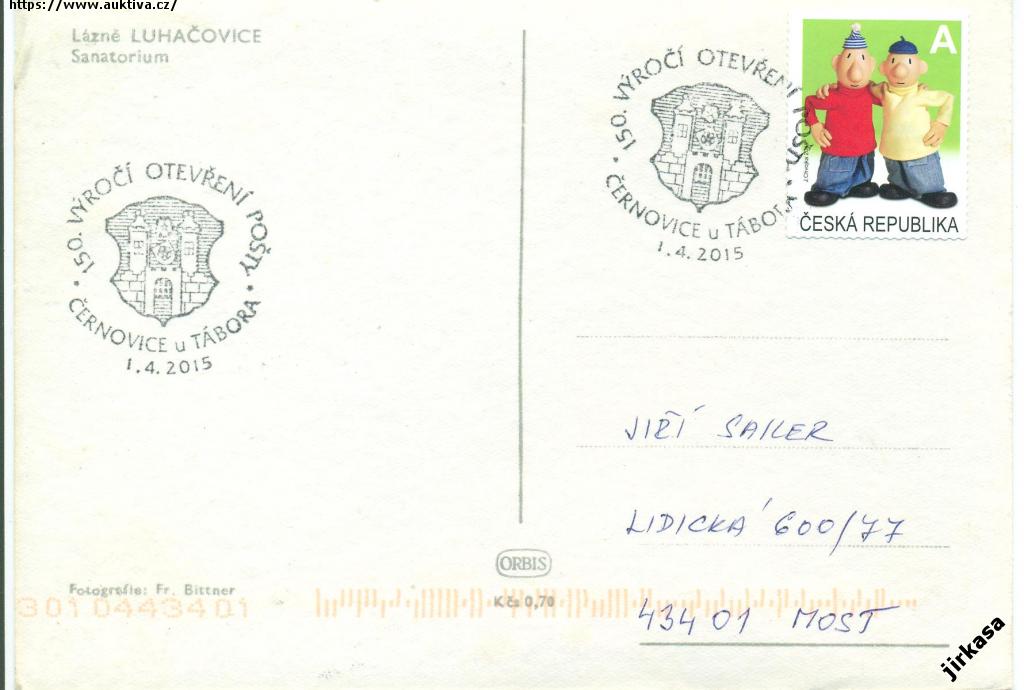 https://www.auktiva.cz/
Lázně LUHAČOVICE
Sanatorium
150. VÝROČÍ OTEVŘENÍ POŠTY
ČERNOVICE u TÁBORA
1.4.2015
150. VÝROČÍ OTEVŘENÍ POŠTY
ČERNOVICE u TÁBORA
1.4.2015
A
ČESKÁ REPUBLIKA
JIŘÍ SAILER
LIDICKÁ 600/77
43401 MOST
ORBIS
Kčs 0,70
Fotografie: Fr. Bittner
301 0443401
jirkasa